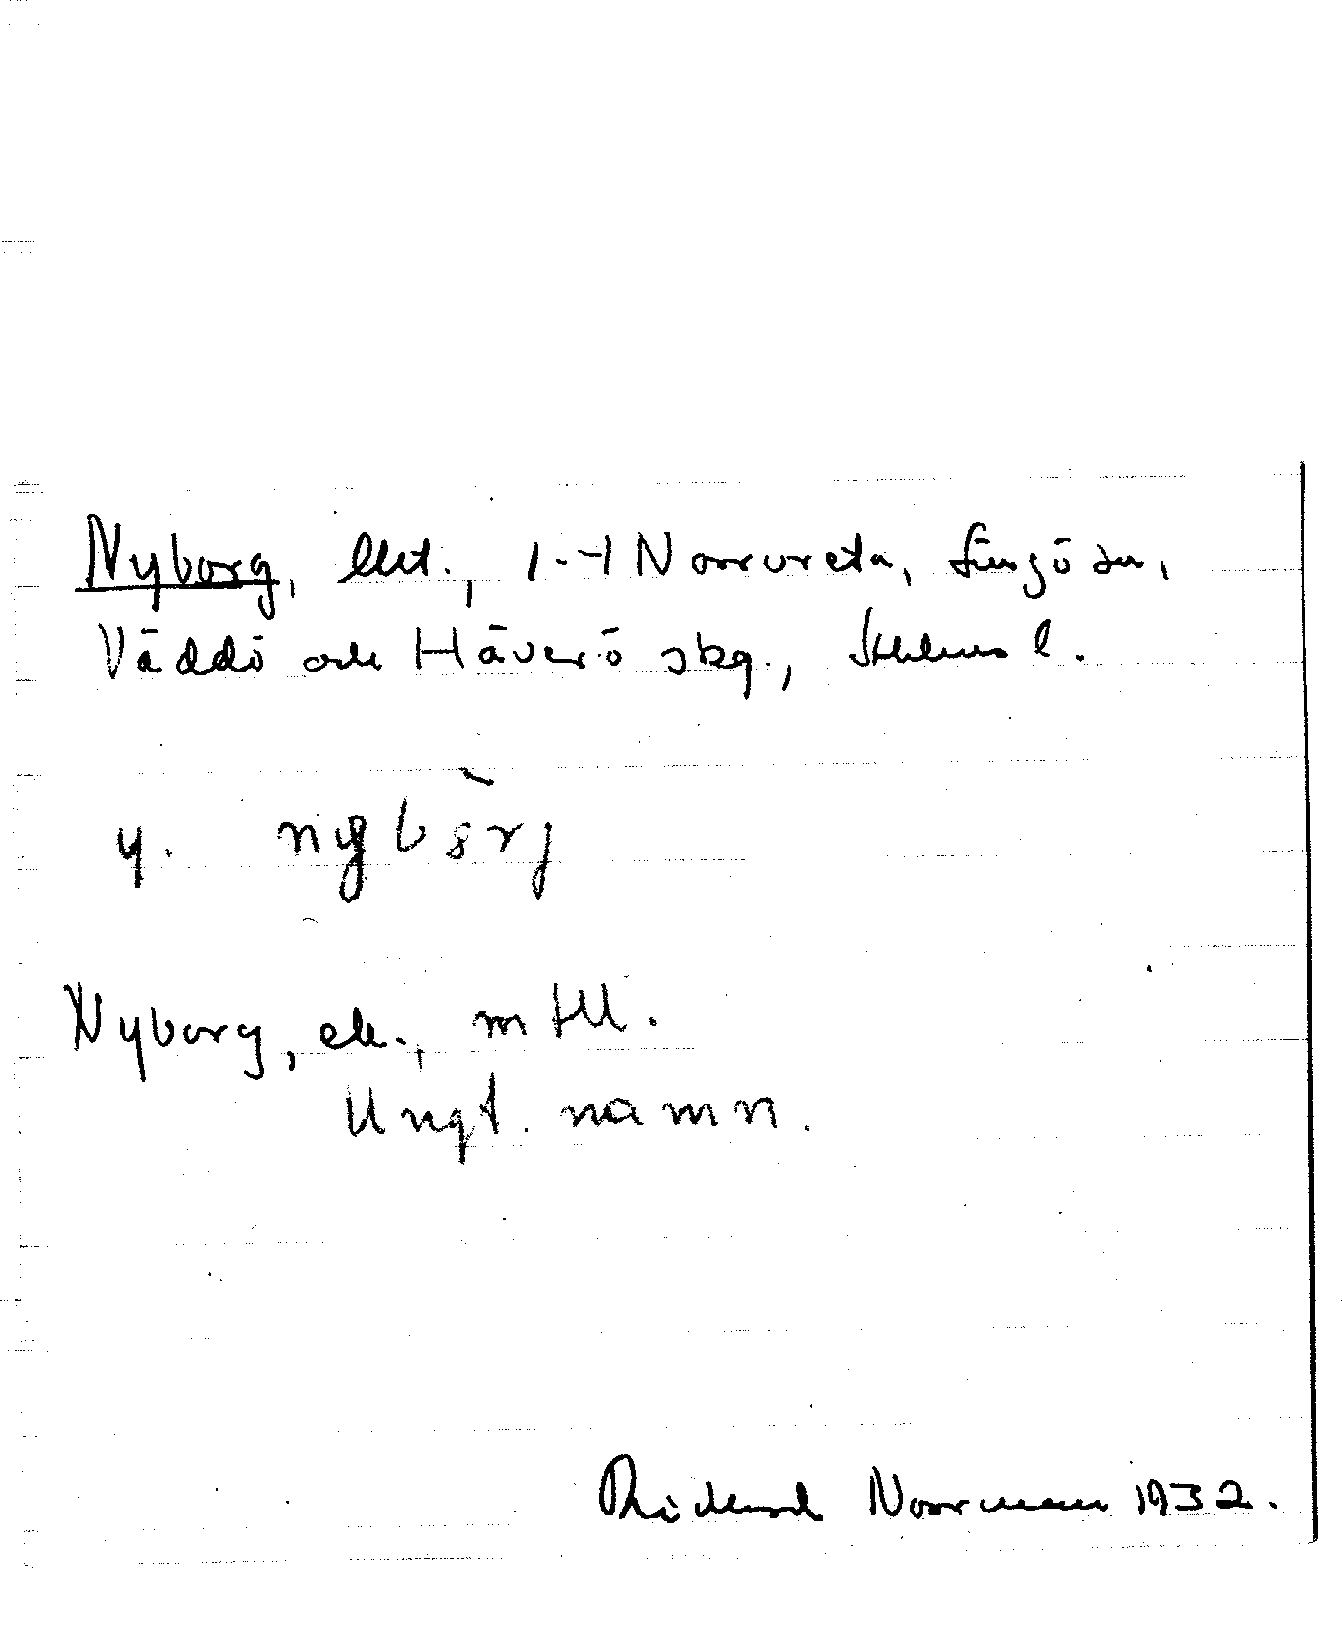 Nyborg, lht., 1-4 Norrvreta, Singö sn,
Väddö och Häverö skg., Sthlms l.
y. nyborj
Nyborg, ek., mtll.
Ungt. namn.
Rickard Norrman 1932.